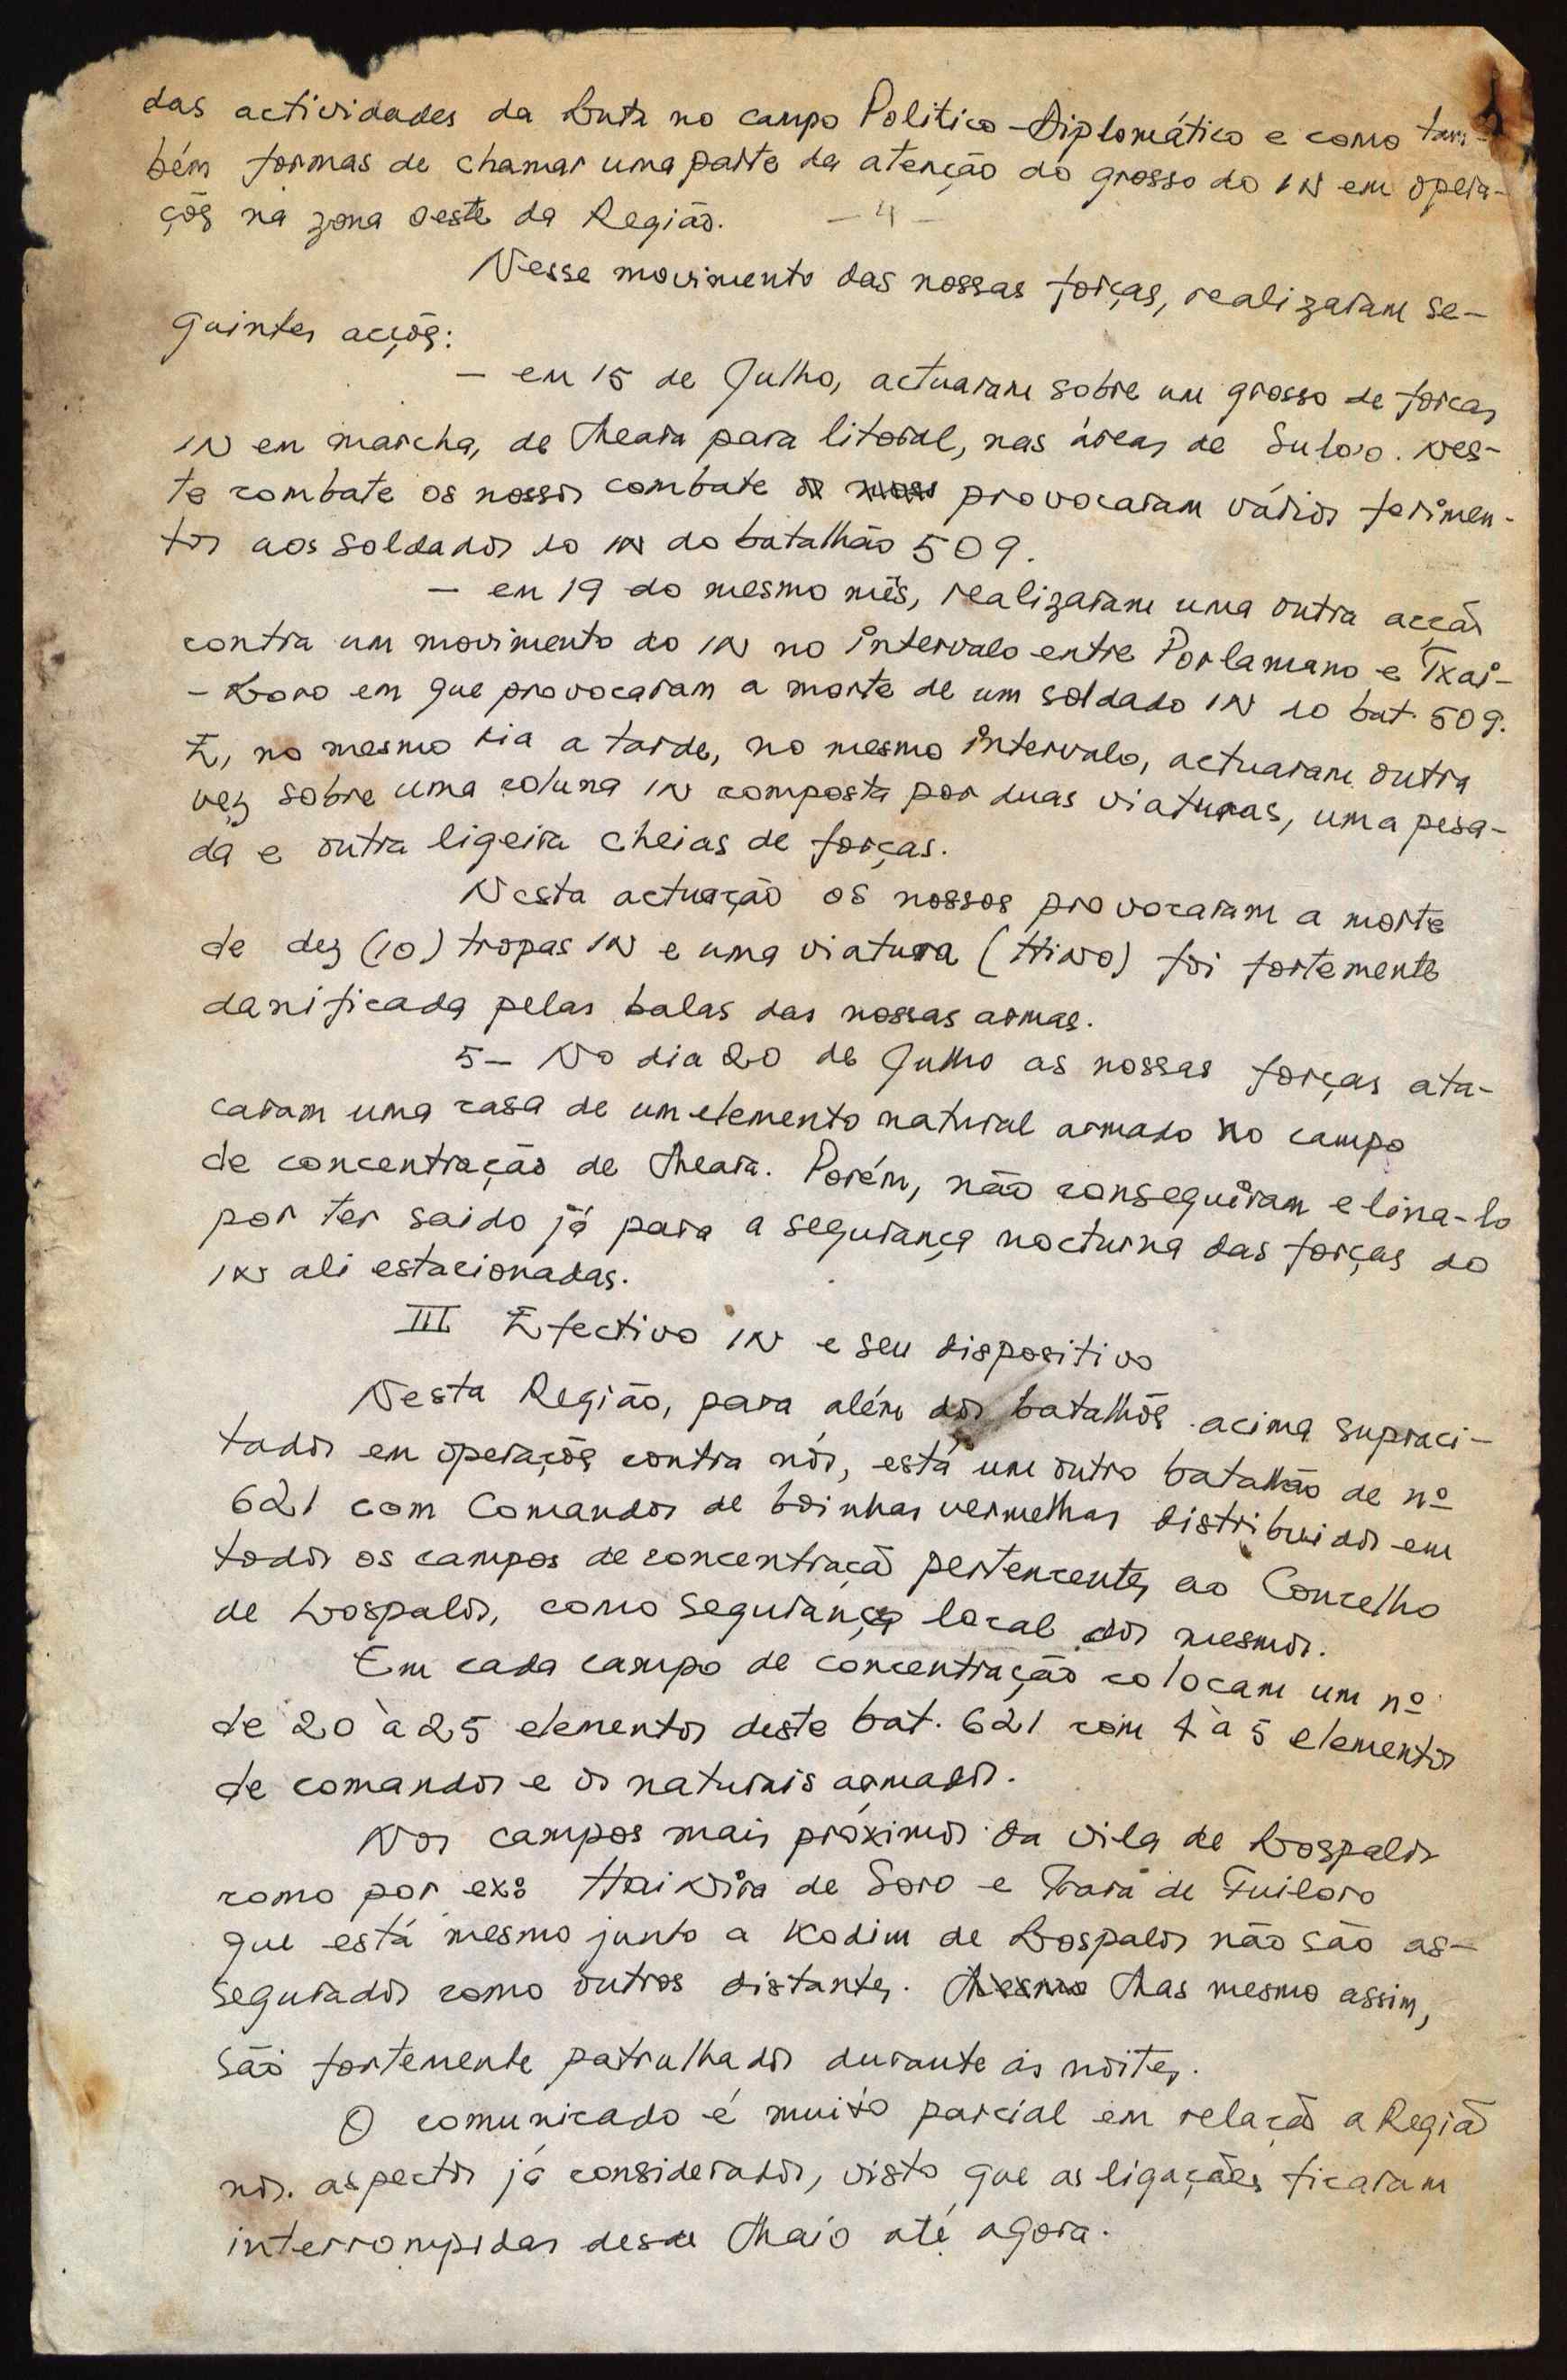 das actividades da Luta no campo Politico-Diplomático e como tam-
bém formas de chamar uma parte da atenção do grosso do IN em opera-
çõs na zona oeste da Região. — 4 —
Nesse movimento das nossas forças, realizaram se-
guintes acçõs:
— em 15 de Julho, actuaram sobre um grosso de forças
IN em marcha, de Meara para litoral, nas áreas de Suloro. Nes-
te combate os nossos combate provocaram vários ferimen-
tos aos soldados do IN do batalhão 509.
— em 19 do mesmo mês, realizaram uma outra acção
contra um movimento do IN no intervalo entre Porlamano e Txai-
-Loro em que provocaram a morte de um soldado IN do bat. 509.
E, no mesmo dia a tarde, no mesmo intervalo, actuaram outra
vez sobre uma coluna IN composta por duas viaturas, uma pesa-
da e outra ligeira cheias de forças.
Nesta actuação os nossos provocaram a morte
de dez (10) tropas IN e uma viatura (Hino) foi fortemente
danificada pelas balas das nossas armas.
5- No dia 20 de Julho as nossas forças ata-
caram uma casa de um elemento natural armado no campo
de concentração de Meara. Porém, não conseguiram elina-lo
por ter saido já para a segurança nocturna das forças do
IN ali estacionadas.
III Efectivo IN e seu dispositivo
Nesta Região, para além dos batalhõs acima supraci-
tados em operaçõs contra nós, está um outro batalhão de nº
621 com Comandos de boinhas vermelhas distribuidos em
todos os campos de concentração pertencentes ao Concelho
de Lospalos, como segurança local dos mesmos.
Em cada campo de concentração colocam um nº
de 20 à 25 elementos deste bat. 621 com 4 à 5 elementos
de comandos e os naturais armados.
Nos campos mais próximos da vila de Lospalos
como por ex: de Soro e de Fuiloro
que está mesmo junto a Kodim de Lospalos não são as-
segurados como outros distantes. Mesmo Mas mesmo assim,
são fortemente patrulhados durante as noites.
O comunicado é muito parcial em relação a Região
nos aspectos já considerados, visto que as ligações ficaram
interrompidas desde Maio até agora.